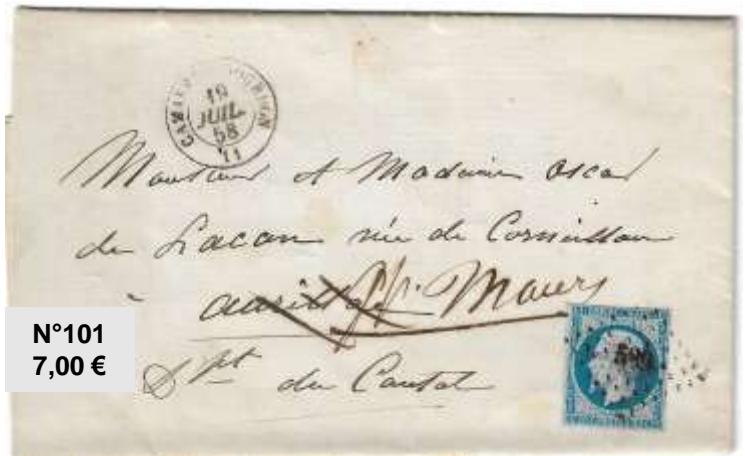 19
JUIL.
58
11
Monsieur et Madame Oscar
de Lacan née de Corneillan
à aurillac Maurs
Dpt du Cantal
N°101
7,00 €